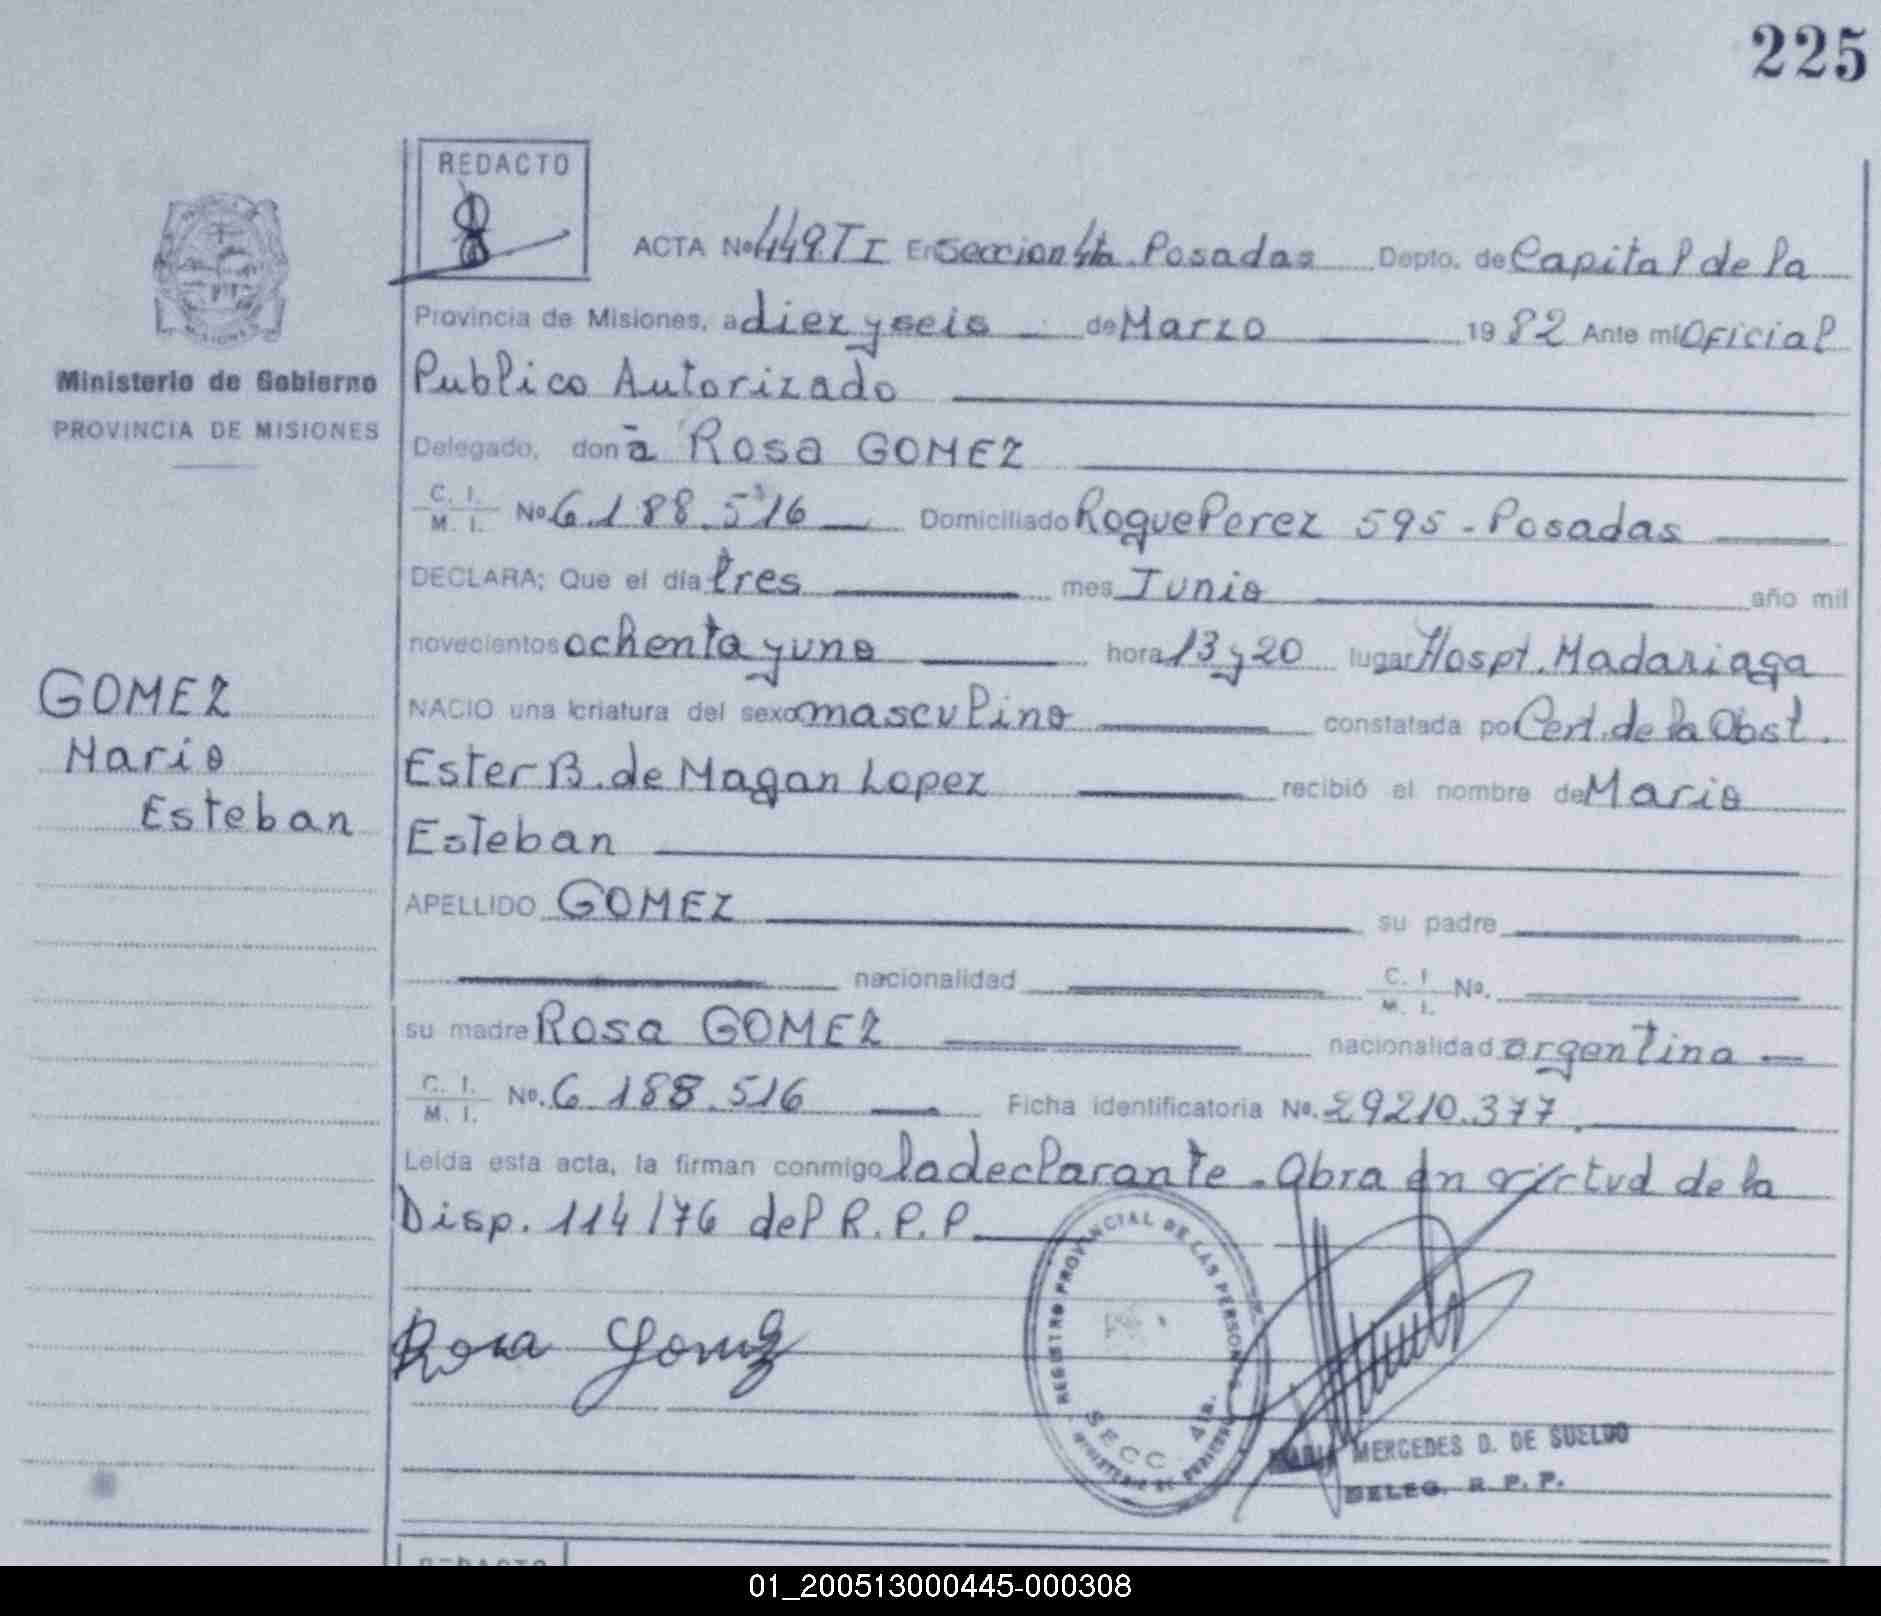 225
REDACTO
ACTA Nº 449.TI En Seccion 4ta. Posadas Depto. de Capital de la
Provincia de Misiones, a diez y seis de Marzo 1982 Ante mi Oficial
Ministerio de Gobierno
PROVINCIA DE MISIONES
Publico Autorizado
Delegado, doña Rosa GOMEZ
C. I. M. I. Nº 6.188.516 Domiciliado Roque Perez 595 - Posadas
DECLARA; Que el día tres mes Junio año mil
novecientos ochenta y uno hora 13 y 20 lugar Hospt. Madariaga
NACIO una criatura del sexo masculino constatada por Cert. de la Obst.
Ester B. de Magan Lopez recibió el nombre de Mario
Esteban
GOMEZ
Mario
Esteban
APELLIDO GOMEZ su padre
nacionalidad C. I. M. I. Nº.
su madre Rosa GOMEZ nacionalidad argentina
C. I. M. I. Nº. 6.188.516 Ficha identificatoria Nº. 29210.377.
Leida esta acta, la firman conmigo la declarante. Obra en virtud de la
Disp. 114/76 del R.P.P.
Rosa Gomez
REGISTRO PROVINCIAL DE LAS PERSONAS
SECC. 4ta.
MINISTERIO DE GOBIERNO
MERCEDES D. DE SUELDO
DELEG. R. P. P.
REDACTO
01_200513000445-000308